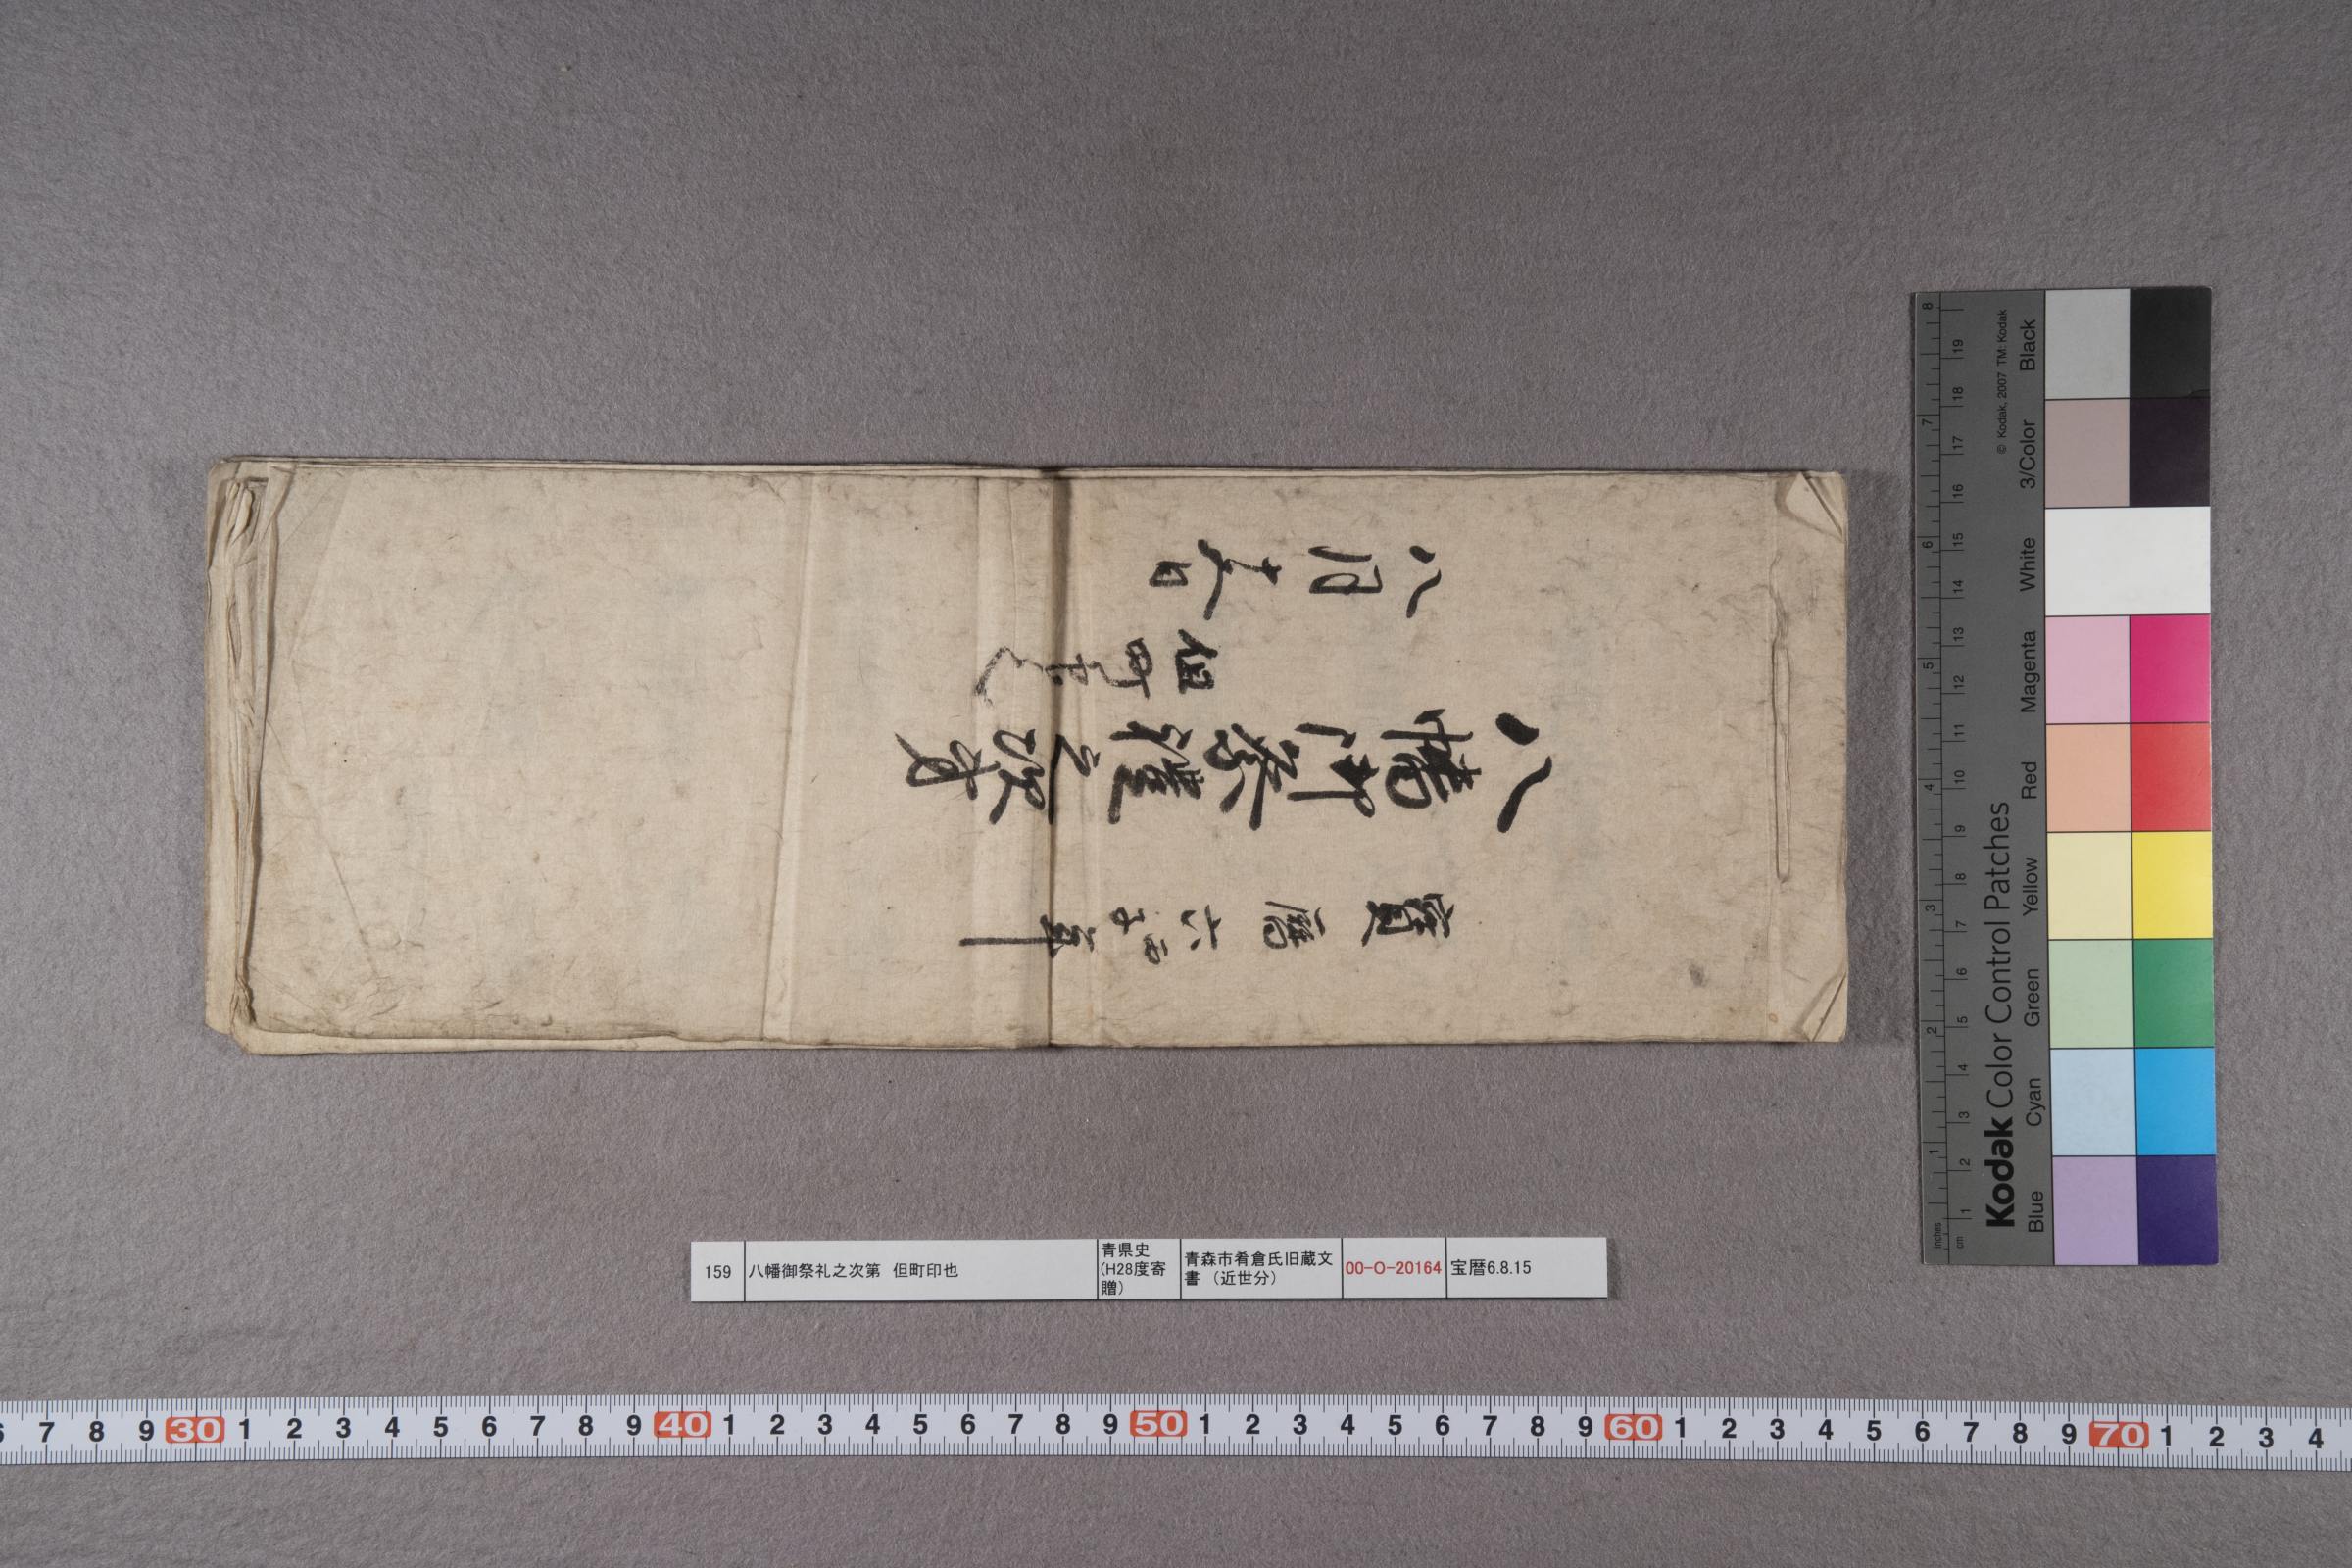 寶暦六丙子年
八幡御祭禮之次第
但町印也
八月十五日
159 八幡御祭礼之次第 但町印也 青県史(H28度寄贈) 青森市肴倉氏旧蔵文書(近世分) 00-O-20164 宝暦6.8.15
Kodak Color Control Patches
© Kodak, 2007 TM: Kodak
Blue Cyan Green Yellow Red Magenta White 3/Color Black
inches 1 2 3 4 5 6 7 8
cm 1 2 3 4 5 6 7 8 9 10 11 12 13 14 15 16 17 18 19
6 7 8 9 30 1 2 3 4 5 6 7 8 9 40 1 2 3 4 5 6 7 8 9 50 1 2 3 4 5 6 7 8 9 60 1 2 3 4 5 6 7 8 9 70 1 2 3 4